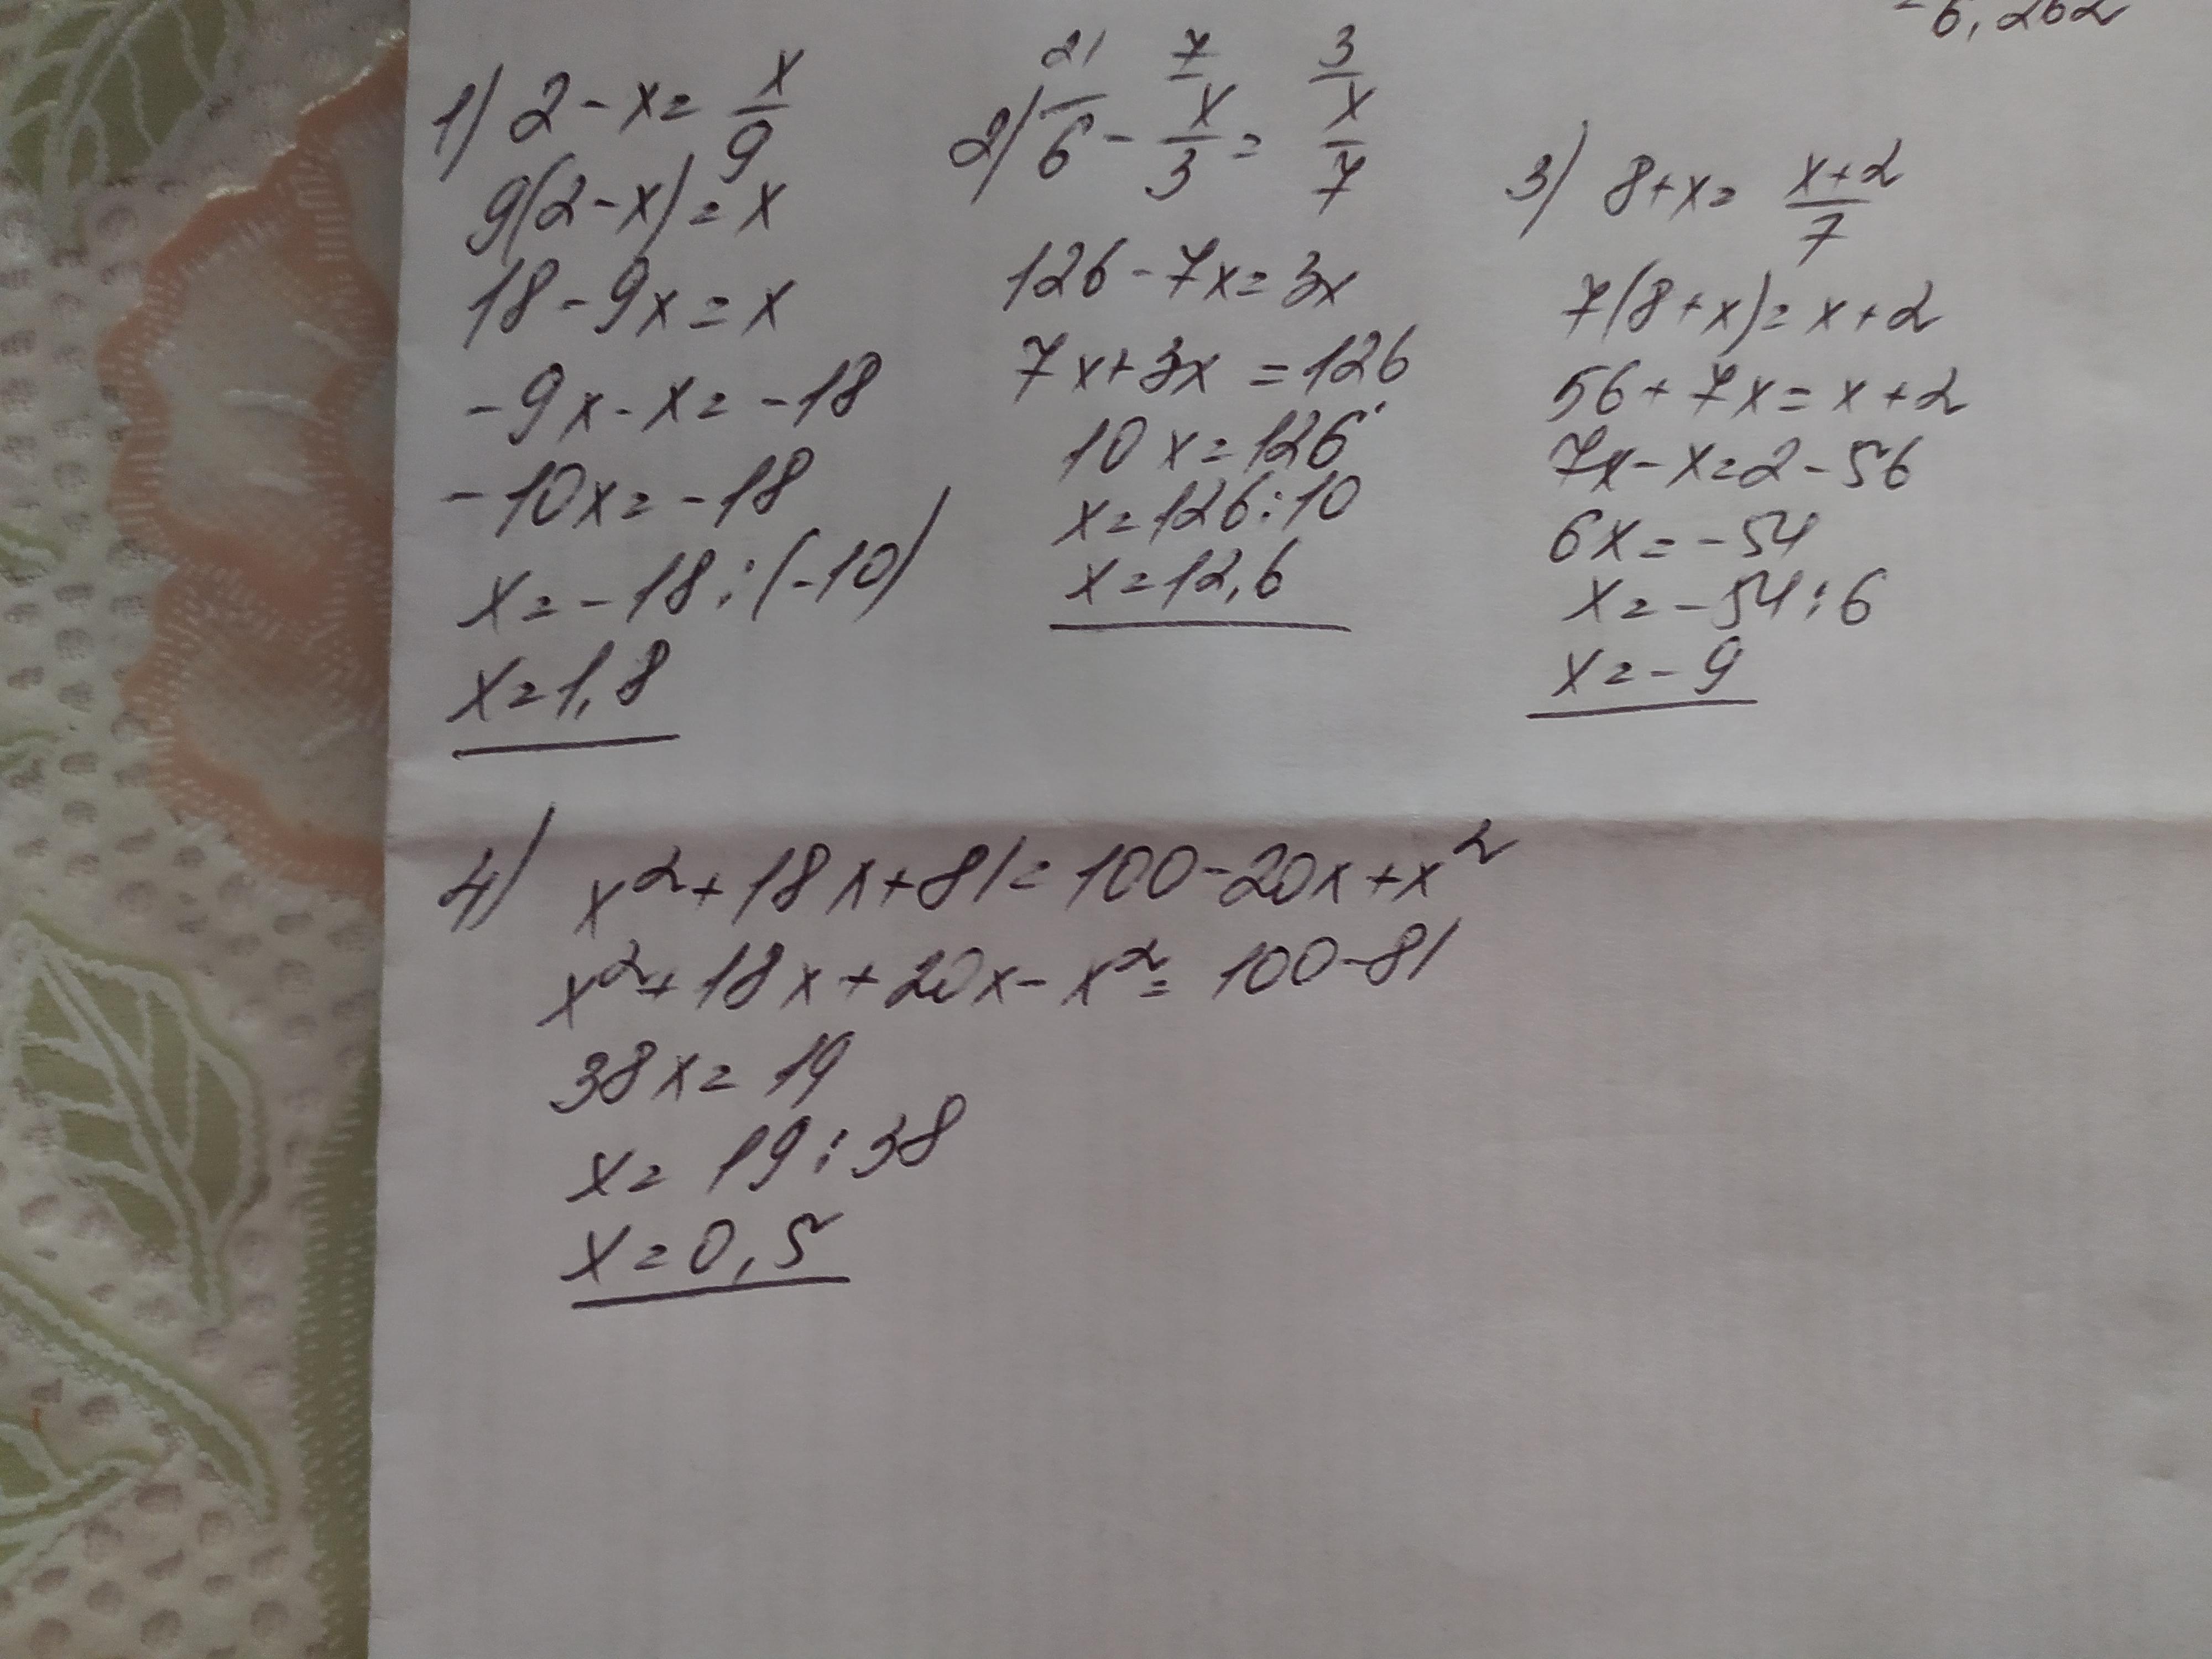 -6,262
1) 2 - x = x/9
9(2-x) = x
18 - 9x = x
-9x - x = -18
-10x = -18
x = -18 : (-10)
x = 1,8
21 7 3
2) 6 - x/3 = x/7
126 - 7x = 3x
7x + 3x = 126
10x = 126
x = 126 : 10
x = 12,6
3) 8 + x = x+2/7
7(8+x) = x+2
56 + 7x = x + 2
7x - x = 2 - 56
6x = -54
x = -54 : 6
x = -9
4) x² + 18x + 81 = 100 - 20x + x²
x² + 18x + 20x - x² = 100 - 81
38x = 19
x = 19 : 38
x = 0,5